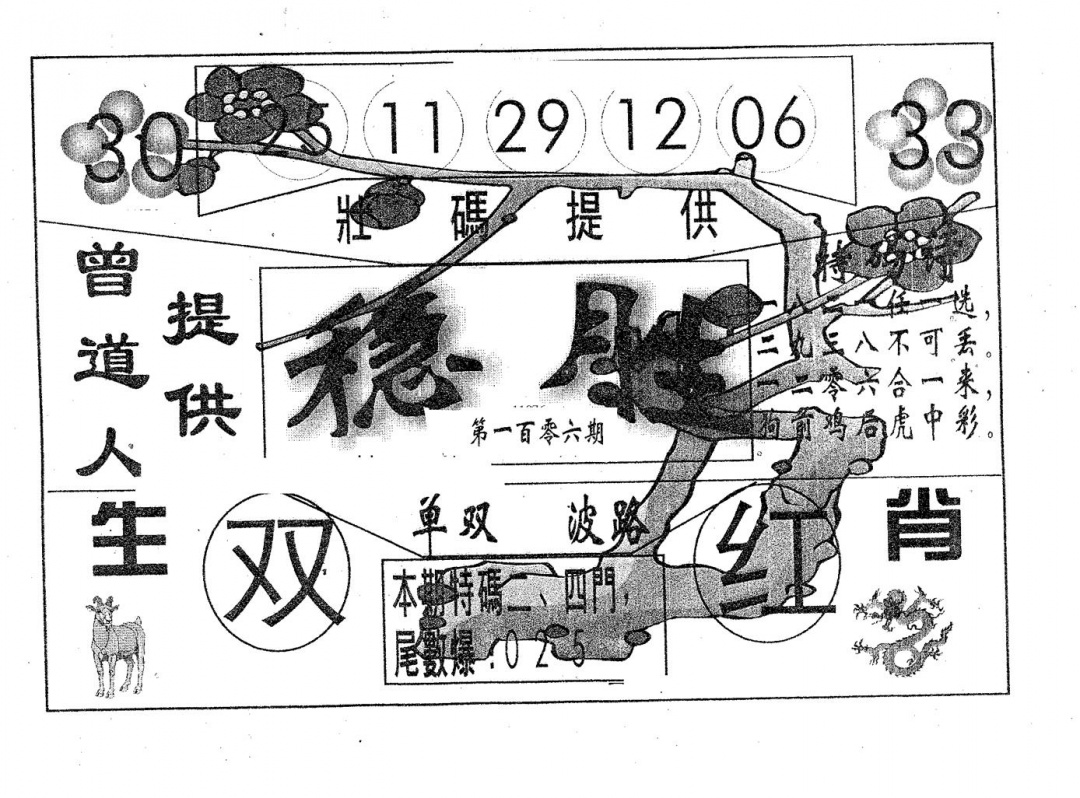 30 25 11 29 12 06 33
壯碼提供
曾道人
提供
稳胜
第一百零六期
特码诗
二八任一选，
二九三八不可丢。
一二零六合一来，
狗前鸡后虎中彩。
生肖
单双 波路
双 红
本期特碼二、四門，
尾數爆：025